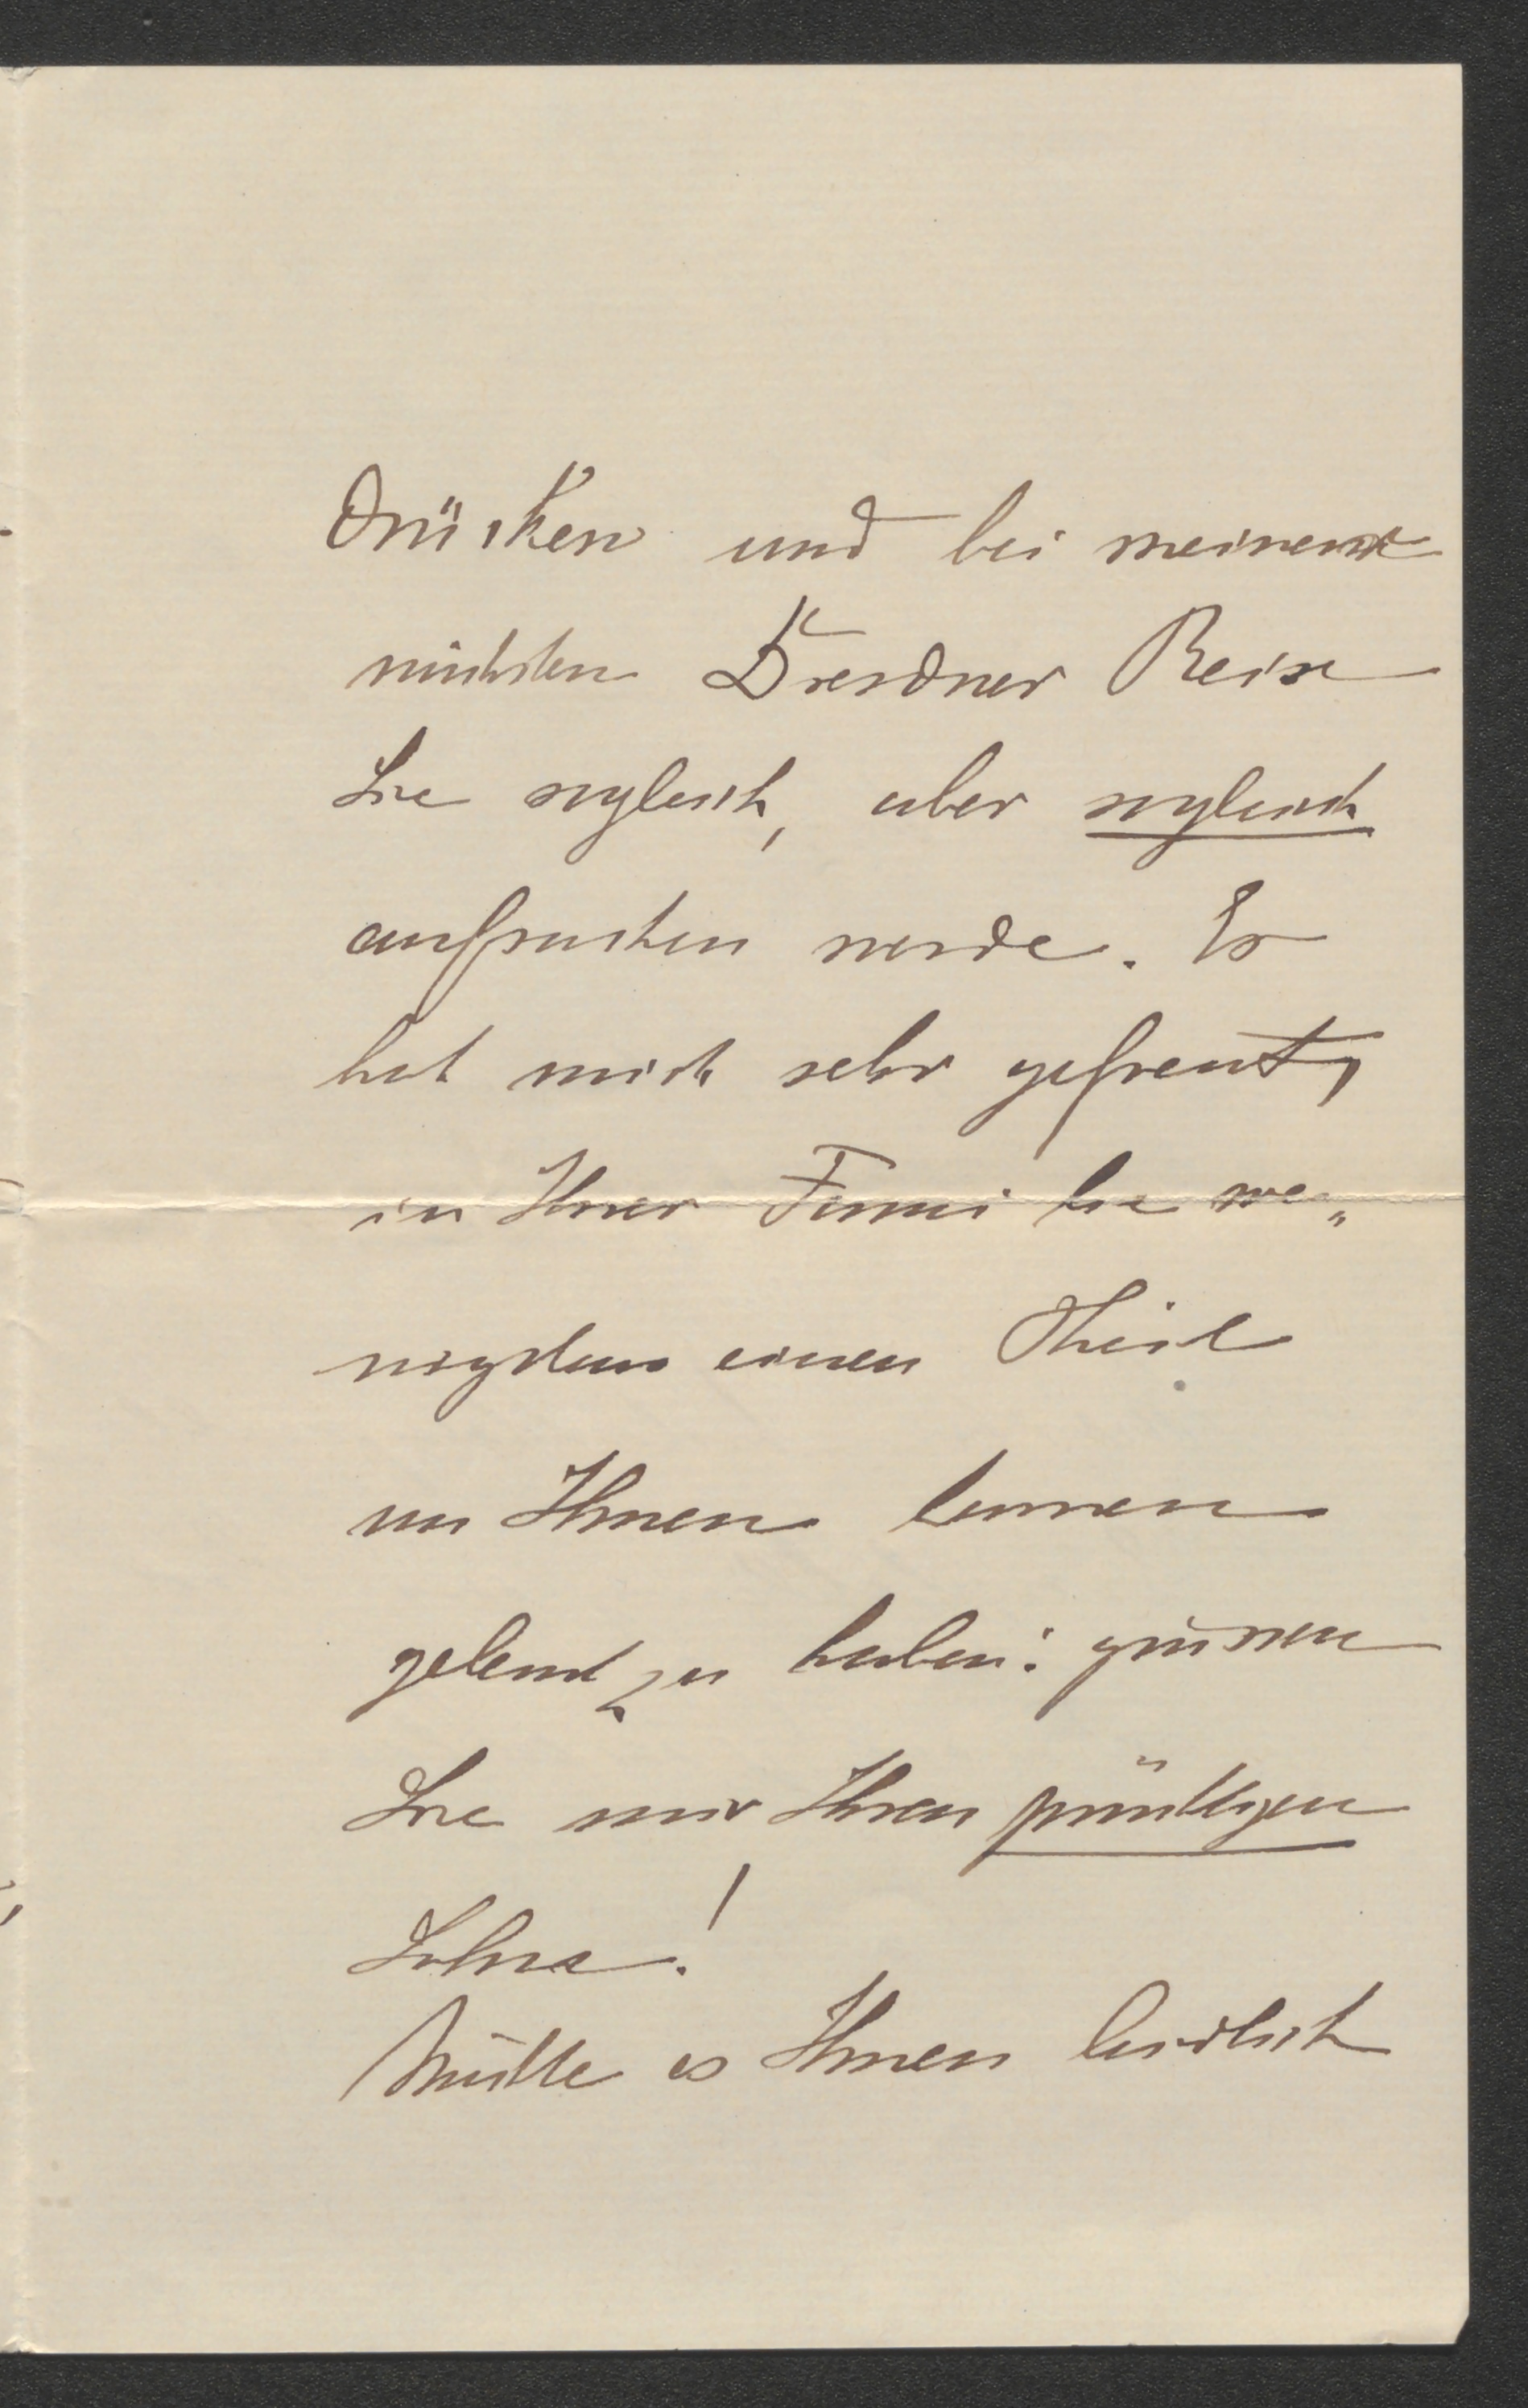 drücken und bei meiner
nächsten Dresdner Reise
Sie sogleich, aber sogleich
aufsuchen werde. Es
hat mich sehr gefreut,
in Ihrer Familie we„
nigstens einen Theil
von Ihnen kennen
gelernt zu haben: grüssen
Sie mir Ihren prächtigen
Sohn!
Möchte es Ihnen leidlich